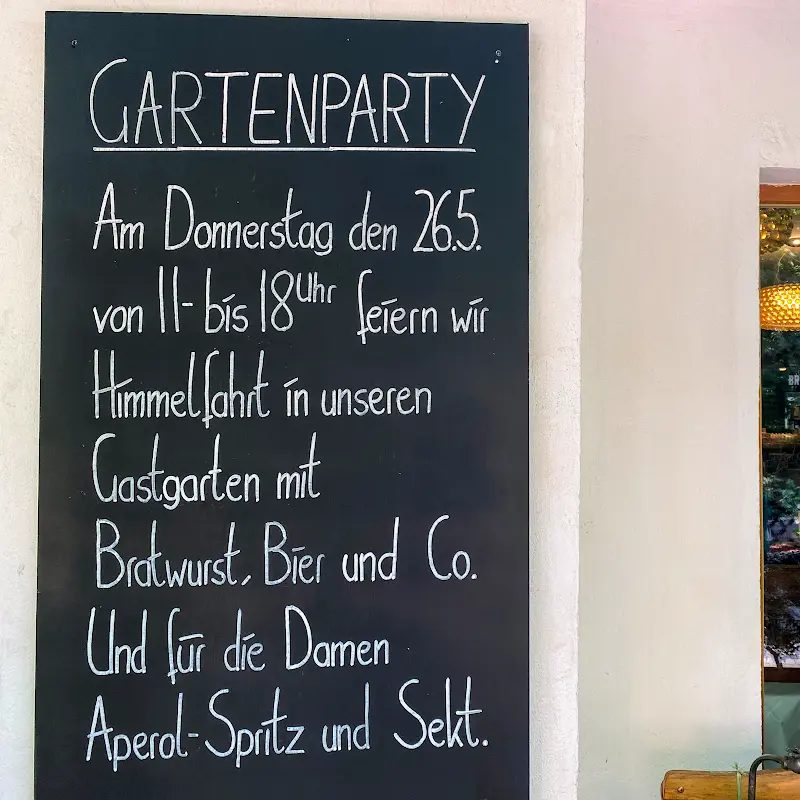 GARTENPARTY
Am Donnerstag den 26.5.
von 11- bis 18 Uhr feiern wir
Himmelfahrt in unseren
Gastgarten mit
Bratwurst, Bier und Co.
Und für die Damen
Aperol-Spritz und Sekt.